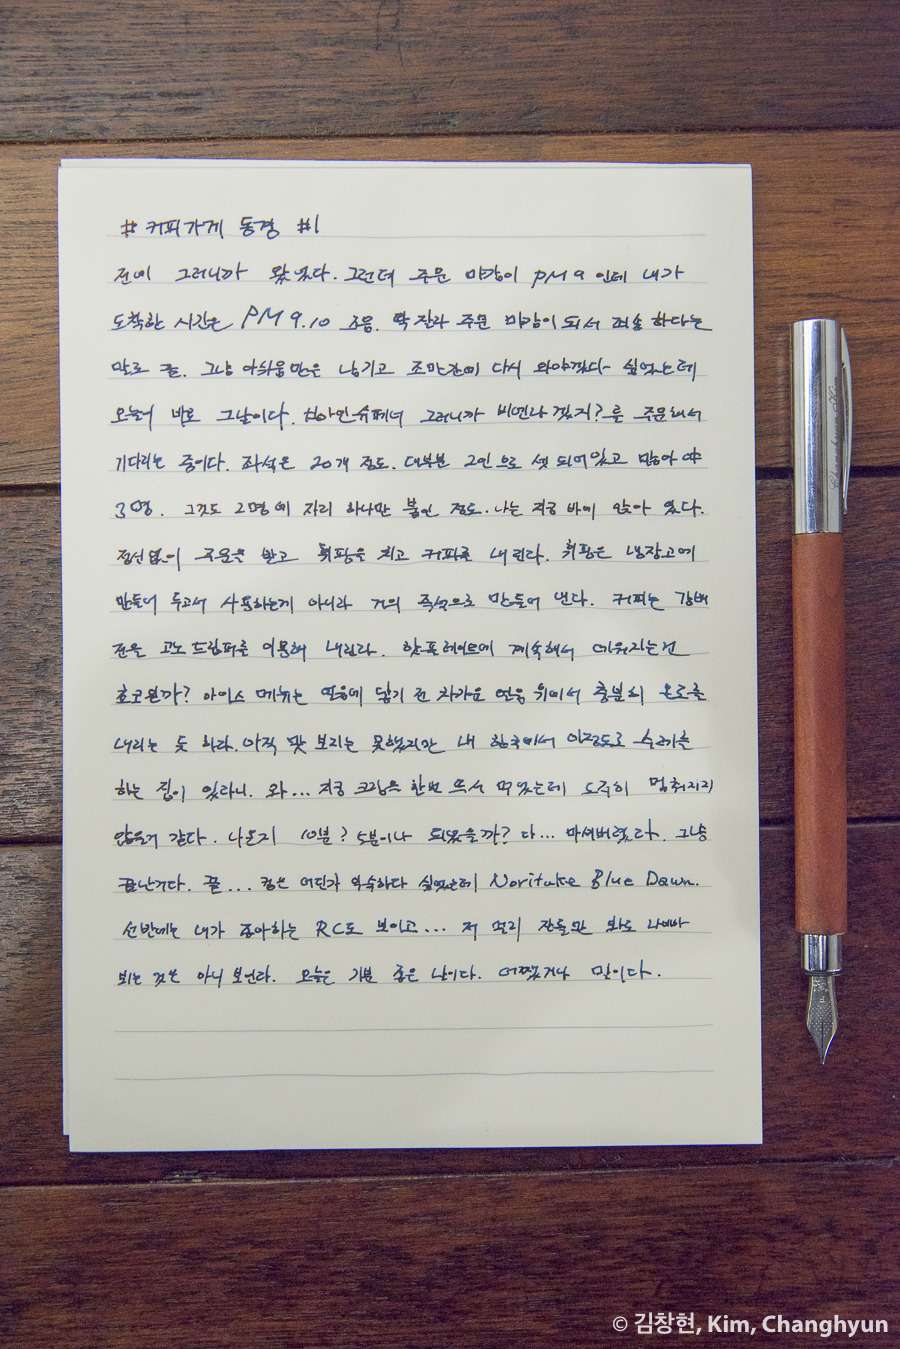 # 커피가게 동경 #1
전에 그러니까 왔었다. 그런데 주문 마감이 PM 9 인데 내가
도착한 시간은 PM 9.10 조음. 딱 잘라 주문 마감이 되서 죄송하다는
말로 끝. 그냥 아쉬움만은 남기고 조만간에 다시 와야겠다 싶었는데
오늘이 바로 그날이다. 아인슈페너 그러니까 비엔나 겠지? 를 주문해서
기다리는 중이다. 좌석은 20개 정도. 대부분 2인으로 셋 되어있고 많아야
3명. 그것도 2명에 자리 하나만 붙인 정도. 나는 지금 바에 앉아 있다.
정신없이 주문을 받고 휘핑을 치고 커피를 내린다. 휘핑은 냉장고에
만들어 두고서 사용하는게 아니라 거의 즉석으로 만들어 낸다. 커피는 강배
전을 고노 드립퍼를 이용해 내린다. 핫플레이트에 계속해서 데워지는건
효고원까? 아이스 메뉴는 얼음에 담기 전 차가운 얼음 위에서 충분히 온도를
내리는 듯 하다. 아직 맛 보지는 못했지만 내 한국에서 이정도로 수고를
하는 집이 있다니. 와... 지금 크림을 한번 떠서 먹었는데 도저히 멈춰지지
않을거 같다. 나온지 10분? 5분이나 되었을까? 다... 마셔버렸다. 그냥
끝난거다. 끝... 잔은 어딘가 익숙하다 싶었는데 Noritake Blue Dawn.
선반에는 내가 좋아하는 RC도 보이고... 저 멀리 잔들만 봐도 나빠
보이는 것은 아니 보인다. 오늘은 기분 좋은 날이다. 어쨌거나 말이다.
© 김창현, Kim, Changhyun